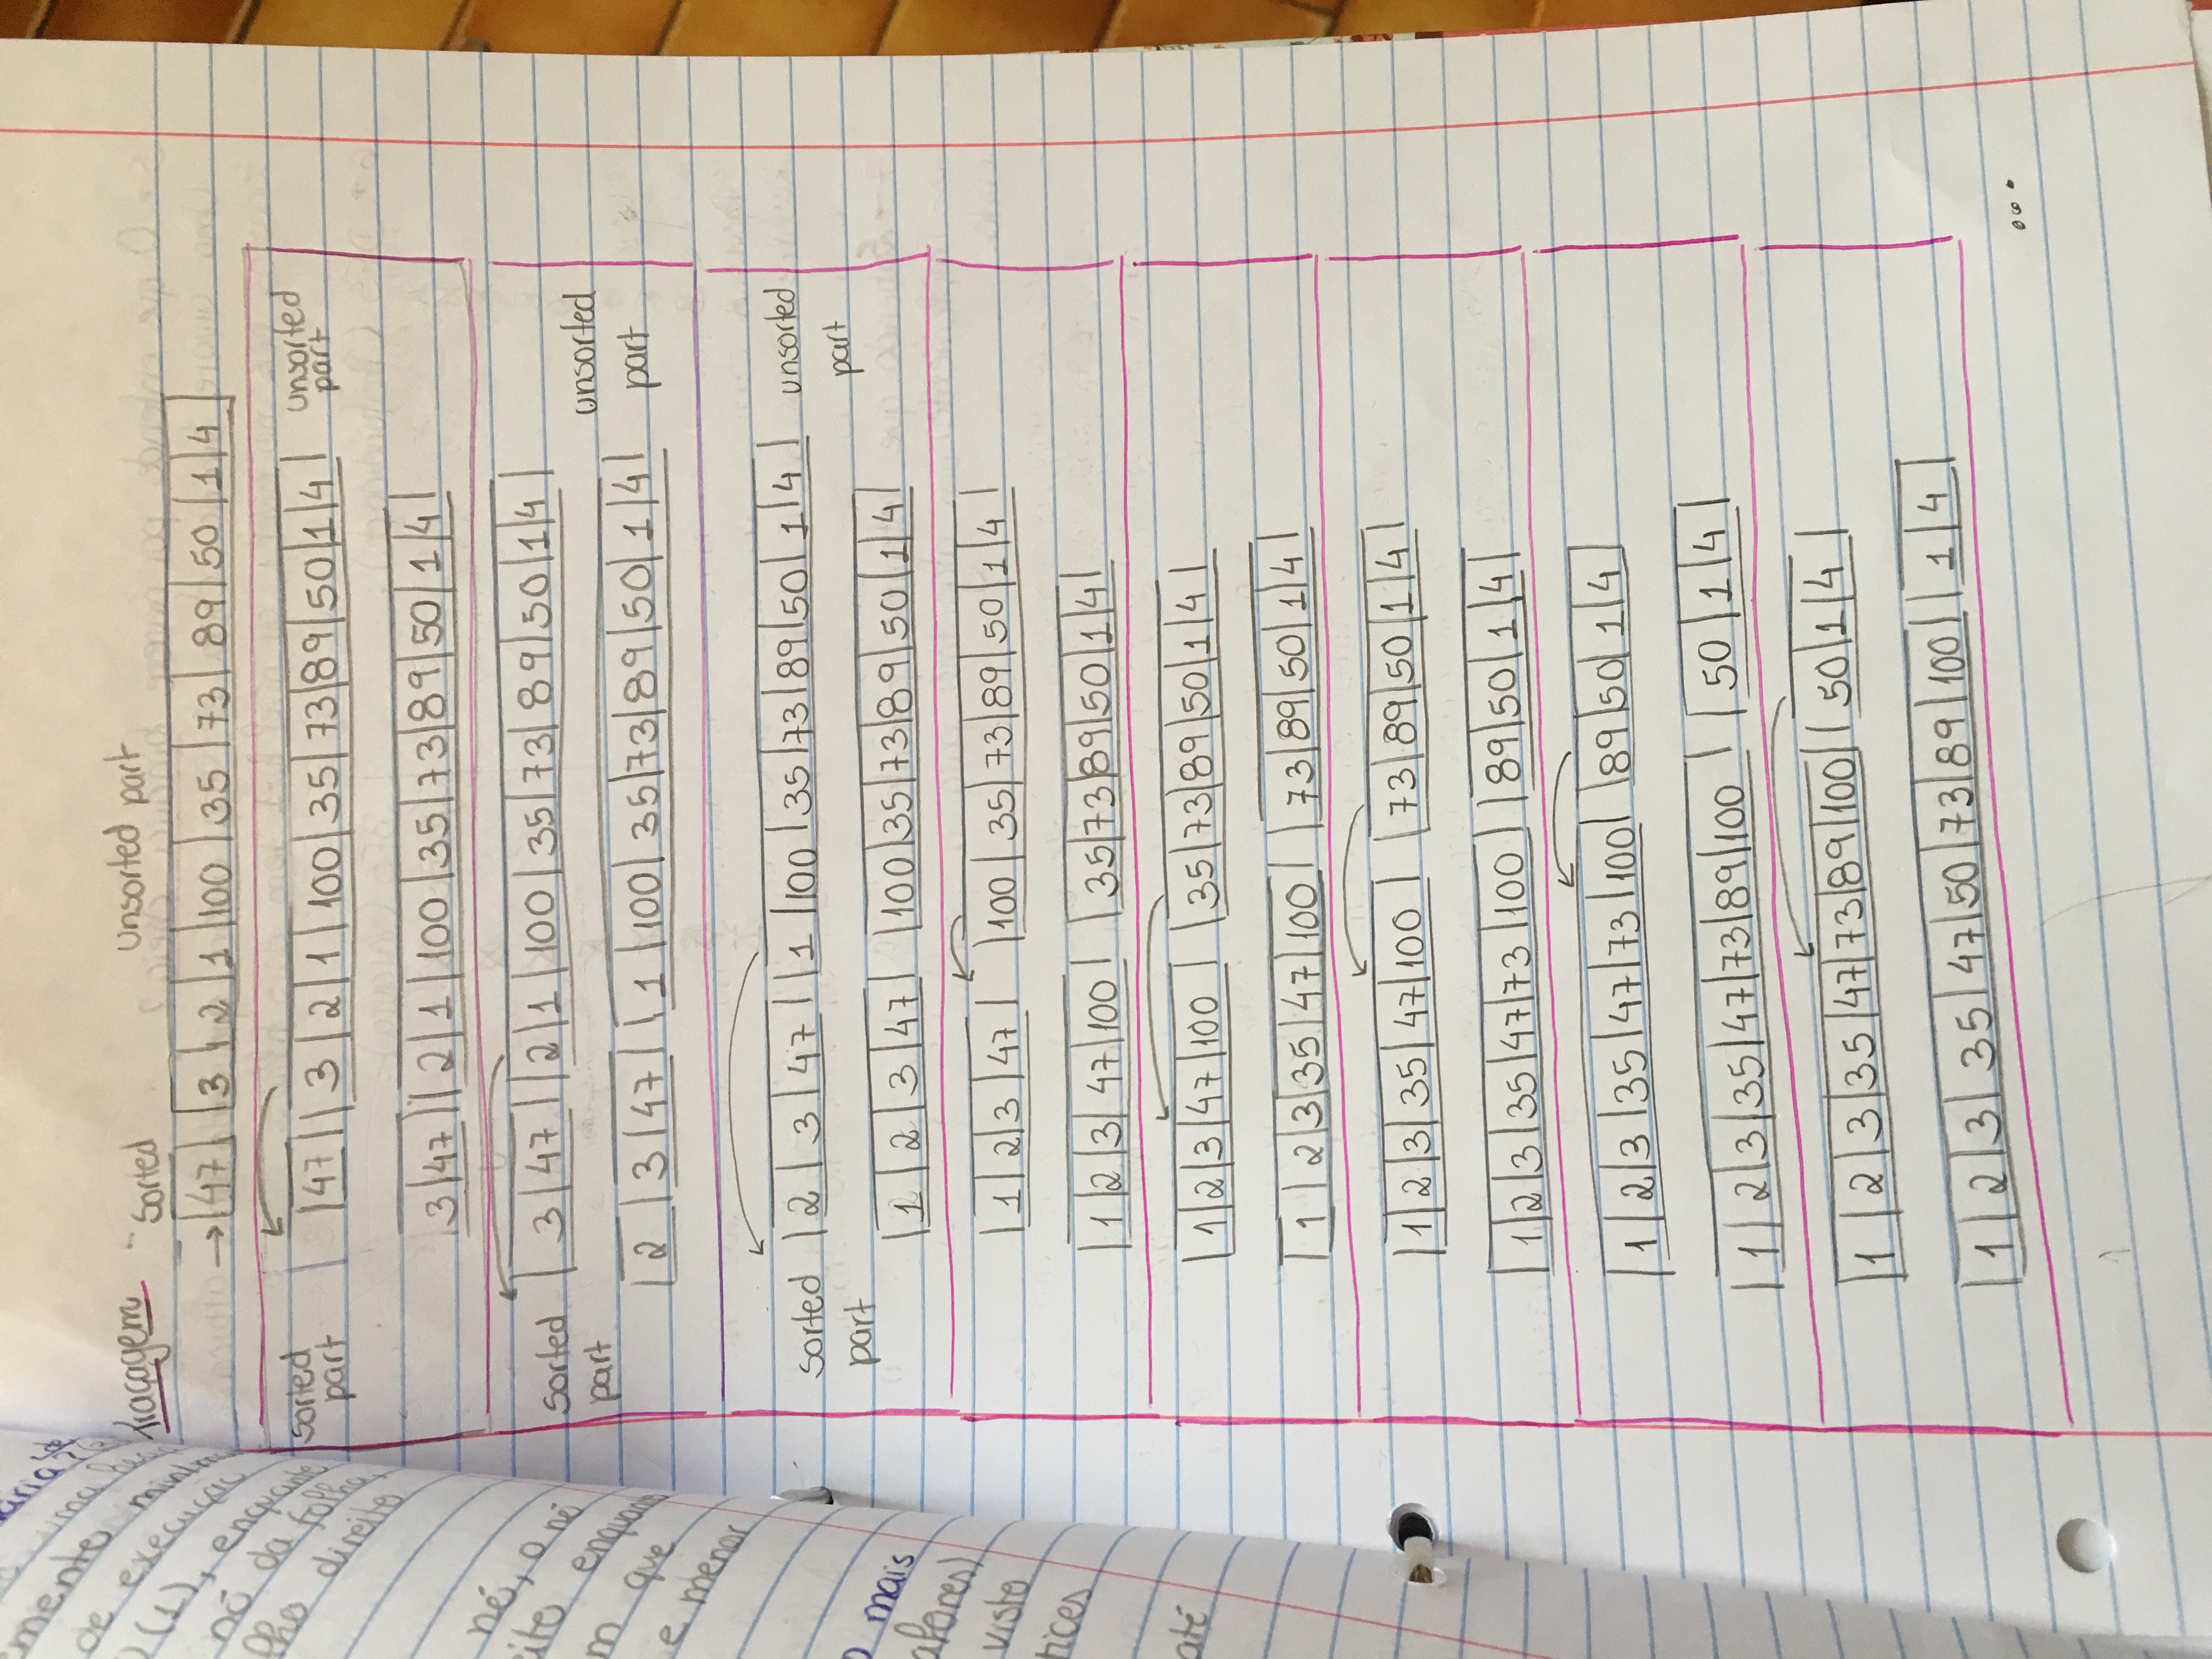 ária?
mento mínim
de execução
(1), enquanto
nó da folha,
lho direito
né, o né
ito enquanto
m que
e menor
o mais
afores)
visto
tices
até
Traçagem
Sorted unsorted part
→ |47| |3|2|1|100|35|73|89|50|1|4|
sorted part |47| |3|2|1|100|35|73|89|50|1|4| unsorted part
3|47| |2|1|100|35|73|89|50|1|4|
sorted part |3|47| |2|1|100|35|73|89|50|1|4| unsorted part
|2|3|47| |1|100|35|73|89|50|1|4|
sorted part |2|3|47| |1|100|35|73|89|50|1|4| unsorted part
|1|2|3|47| |100|35|73|89|50|1|4|
|1|2|3|47| |100|35|73|89|50|1|4|
|1|2|3|47|100| |35|73|89|50|1|4|
|1|2|3|47|100| |35|73|89|50|1|4|
|1|2|3|35|47|100| |73|89|50|1|4|
|1|2|3|35|47|100| |73|89|50|1|4|
|1|2|3|35|47|73|100| |89|50|1|4|
|1|2|3|35|47|73|100| |89|50|1|4|
|1|2|3|35|47|73|89|100| |50|1|4|
|1|2|3|35|47|73|89|100| |50|1|4|
|1|2|3|35|47|50|73|89|100| |1|4|
...